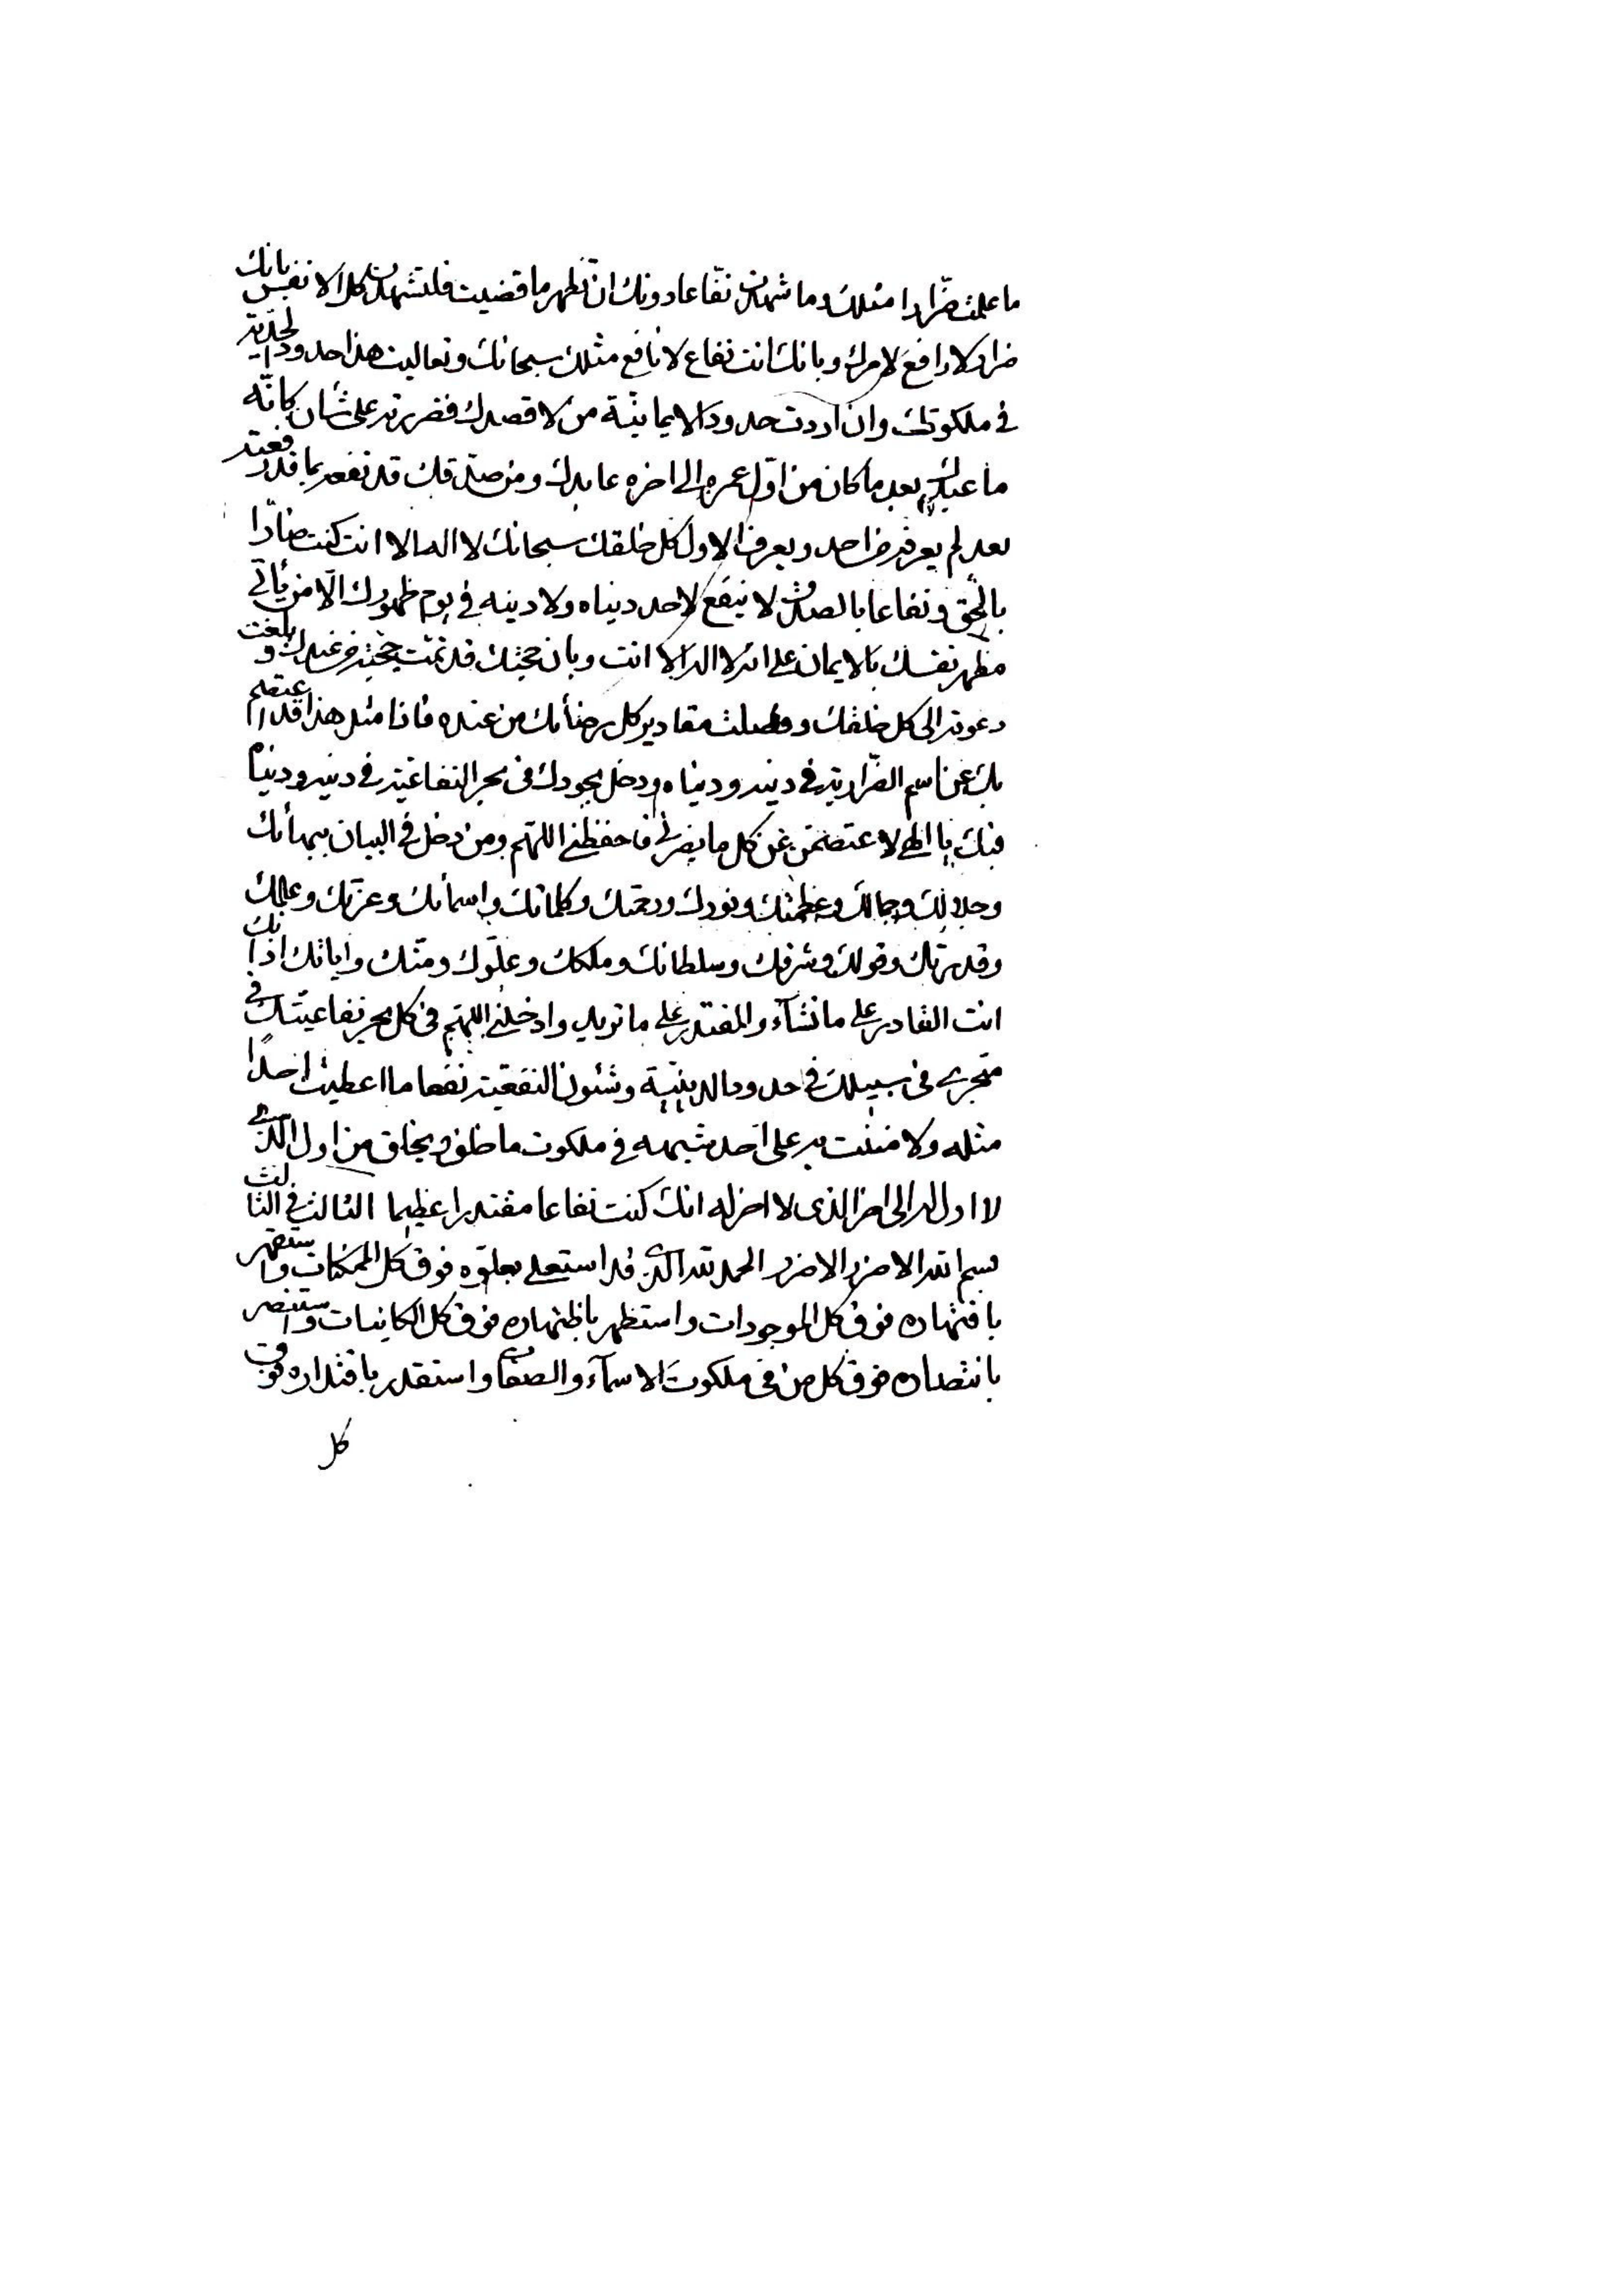 ما علمت ضرارا مثلك وما شهدت نفاعا دونك ان تظهر ما قضيت فلتشهدن كل الانفس بانك
ضرار لا دافع لامرك وبانك انت نفاع لا نافع مثلك سبحانك وتعاليت هذا حدود
في ملكوتك وان اردت حدود الايمانية من لا قصدك فضررته على شان كانه
ما عبدك بعد ما كان من اول عمره الى اخره عابدك ومن صدقك قد نفعته بما قد رفعته
بعد لم يعرفه من احد ويعرف الاول كل خلقك سبحانك لا اله الا انت كنت ضارا
بالحق ونفاعا بالصدق لا ينفع لاحد دنياه ولا دينه في يوم ظهورك الا من ياتي
مظهر نفسك بالايمان على انه لا اله الا انت وبان حجتك قد تمت حجته من عندك وبلغت
دعوته الى كل خلقك وفصلت مقادير كل رضائك من عنده فاذا مثل هذا قد اعتصم
بك عن اسم الضرارية في دينه ودنياه ودخل بجودك في بحر النفاعية في دينه ودنياه
فبك يا الهي لاعتصمن عن كل ما يضرني فاحفظني اللهم ومن دخل في البيان ببهائك
وجلالك وجمالك وعظمتك ونورك ورحمتك وكلماتك واسمائك وعزتك وعلمك
وقدرتك وقولك وشرفك وسلطانك وملكك وعلوك ومنك واياتك اذ انك
انت القادر على ما تشآء والمقتدر على ما تريد وادخلني اللهم في كل بحر نفاعيتك في
متجري في سبيلك في حدود الدينية وشئون النفعية نفعا ما اعطيت احدا
مثله ولا مننت به على احد شبهه في ملكوت ما خلق ويخلق من اول الذي
لا اول له الى اخر الذي لا اخر له انك كنت نفاعا مقتدرا عظيما الثالث في الثالث
بسم الله الاضرر الاضرر الحمد لله الذي قد استعلى بعلوه فوق كل الممكنات واستقهر
باقتهاره فوق كل الموجودات واستظهر باظتهاره فوق كل الكاينات واستنصر
بانتصاره فوق كل من في ملكوت الاسمآء والصفات واستقدر باقتداره فوق
كل